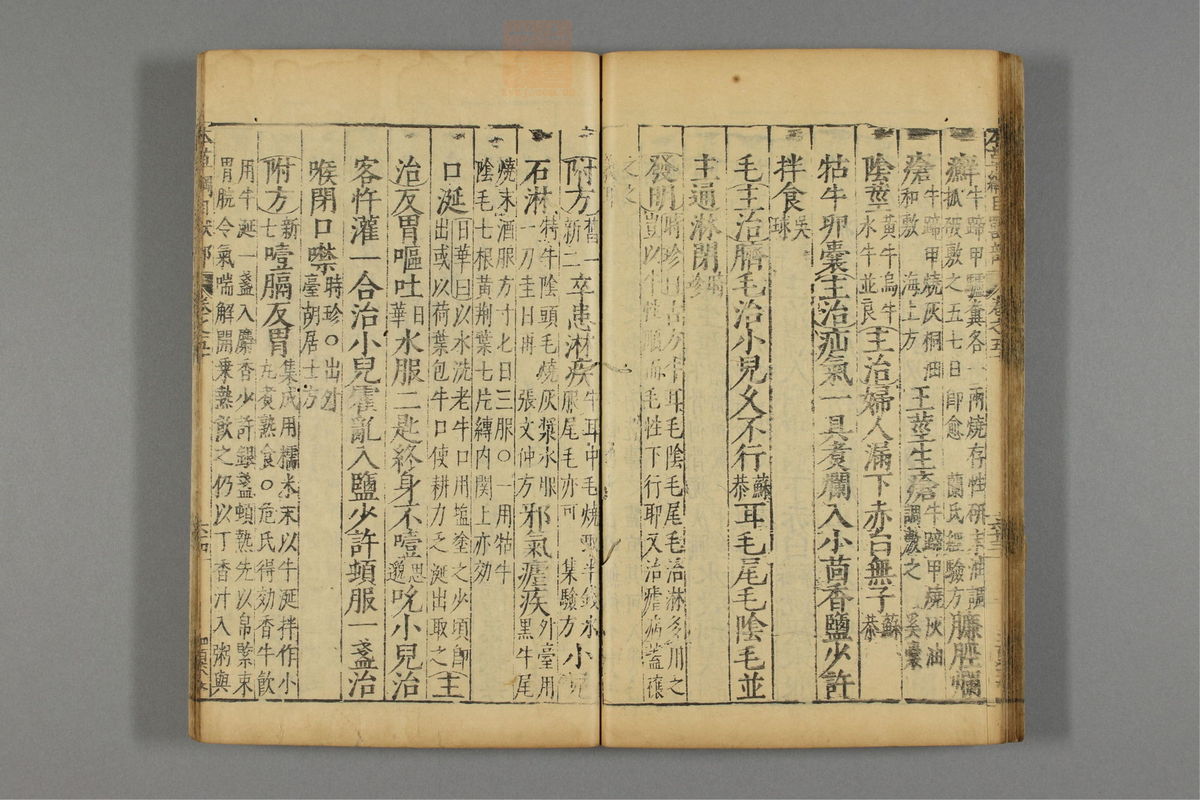 癬 牛蹄甲驢糞各一兩燒存性研末油調
抓破敷之五七日即愈 蘭氏經驗方 臁脛爛
瘡 牛蹄甲燒灰桐油
和敷 海上方 玉莖生瘡 牛蹄甲燒灰油
調敷之 奚囊
陰莖 黃牛烏牛
水牛並良 主治婦人漏下赤白無子 蘇
恭
牯牛卵囊主治疝氣一具煮爛入小茴香鹽少許
拌食 吳
球
毛主治臍毛治小兒久不行 蘇
恭 耳毛尾毛陰毛並
主通淋閉 時
珍
發明 時珍曰古方牛耳毛陰毛尾毛治淋多用之
豈以牛性順而毛性下行耶又治瘧病蓋禳
之之
義耶
附方 舊一
新二 卒患淋疾 牛耳中毛燒取半錢水
服尾毛亦可 集驗方 小兒
石淋 特牛陰頭毛燒灰漿水服
一刀圭日再 張文仲方 邪氣瘧疾 外臺用
黑牛尾
燒末酒服方寸匕日三服〇一用牯牛
陰毛七根黃荊葉七片縛內關上亦効
口涎 日華曰以水洗老牛口用塩塗之少頃即
出或以荷葉包牛口使耕力乏涎出取之 主
治反胃嘔吐 日
華 水服二匙終身不噎 思
邈 吮小兒治
客忤灌一合治小兒霍亂入鹽少許頓服一盞治
喉閉口噤 時珍〇出外
臺胡居士方
附方 新
七 噎膈反胃 集成用糯米末以牛涎拌作小
丸煮熟食〇危氏得効香牛飲
用牛涎一盞入麝香少許銀盞頓熱先以帛緊束
胃脘令氣喘解開乗熱飲之仍以丁香汁入粥與